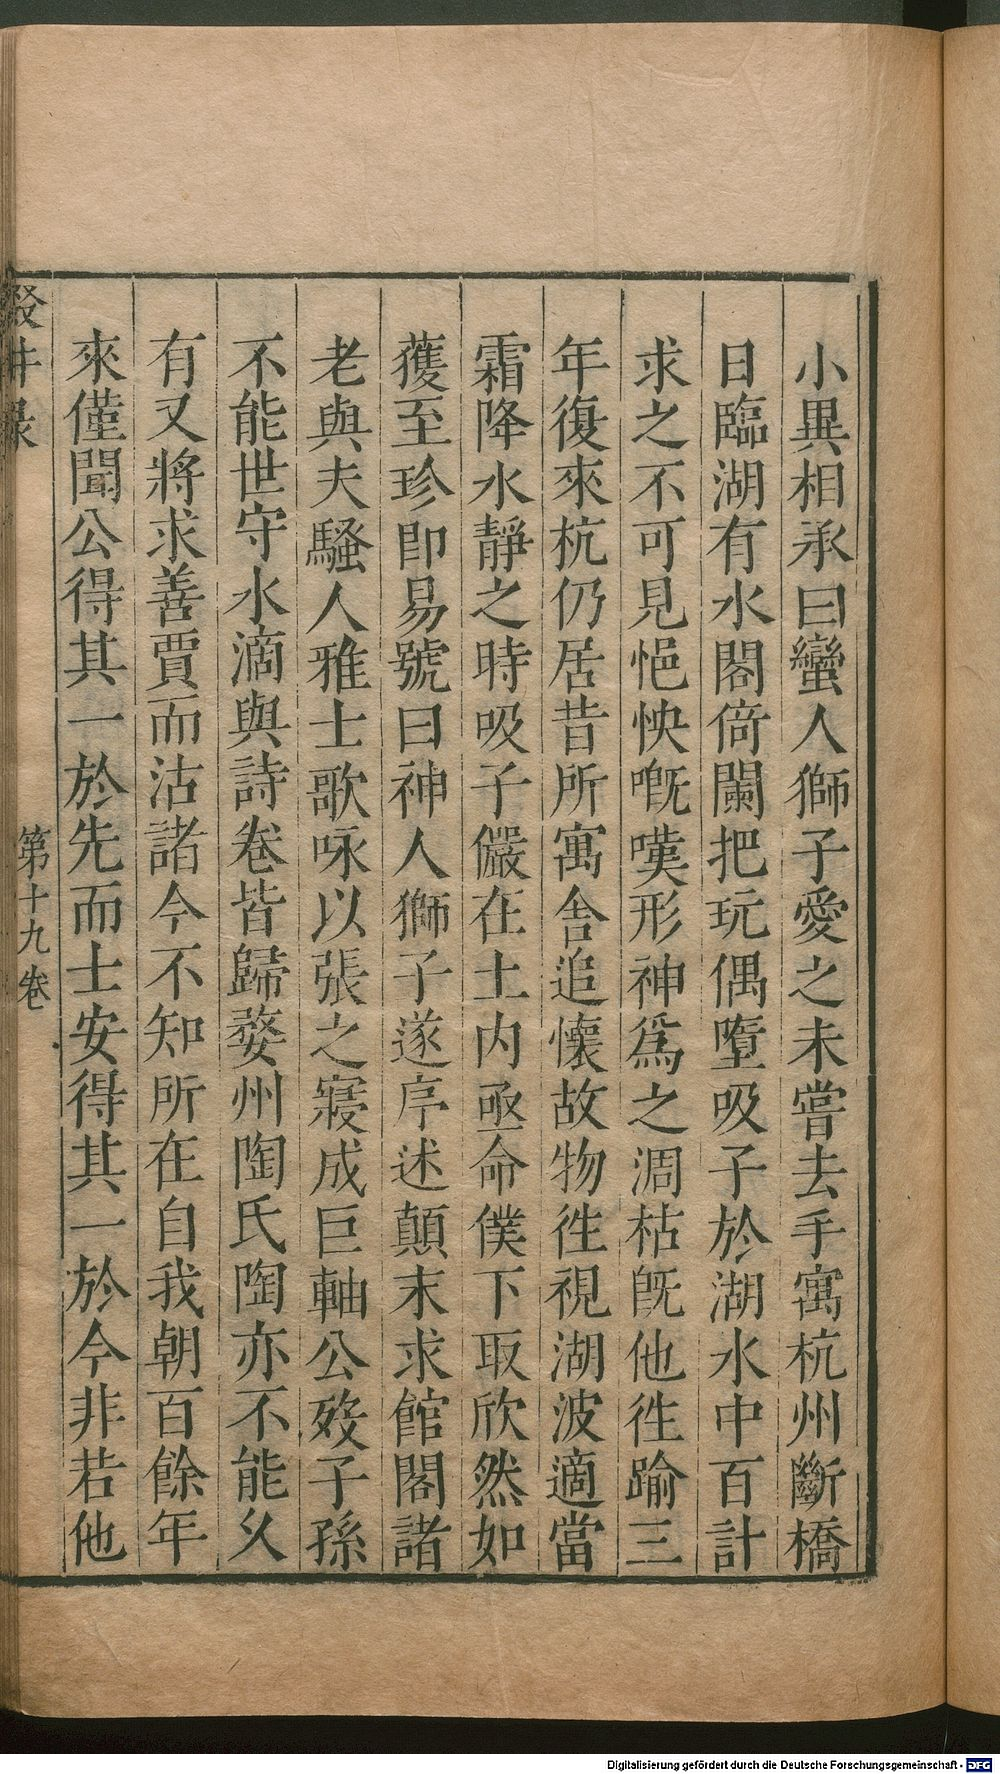 小異相承曰蠻人獅子愛之未嘗去手寓杭州斷橋
日臨湖有水閣倚闌把玩偶墮吸子於湖水中百計
求之不可見悒怏嘅嘆形神爲之凋枯旣他徃踰三
年復來杭仍居昔所寓舍追懷故物徃視湖波適當
霜降水靜之時吸子儼在土内亟命僕下取欣然如
獲至珍即易號曰神人獅子遂序述顛末求館閣諸
老與夫騷人雅士歌咏以張之寢成巨軸公歿子孫
不能世守水滴與詩卷皆歸婺州陶氏陶亦不能乆
有又將求善賈而沽諸今不知所在自我朝百餘年
來僅聞公得其一於先而士安得其一於今非若他
第十九卷
Digitalisierung gefördert durch die Deutsche Forschungsgemeinschaft - DFG